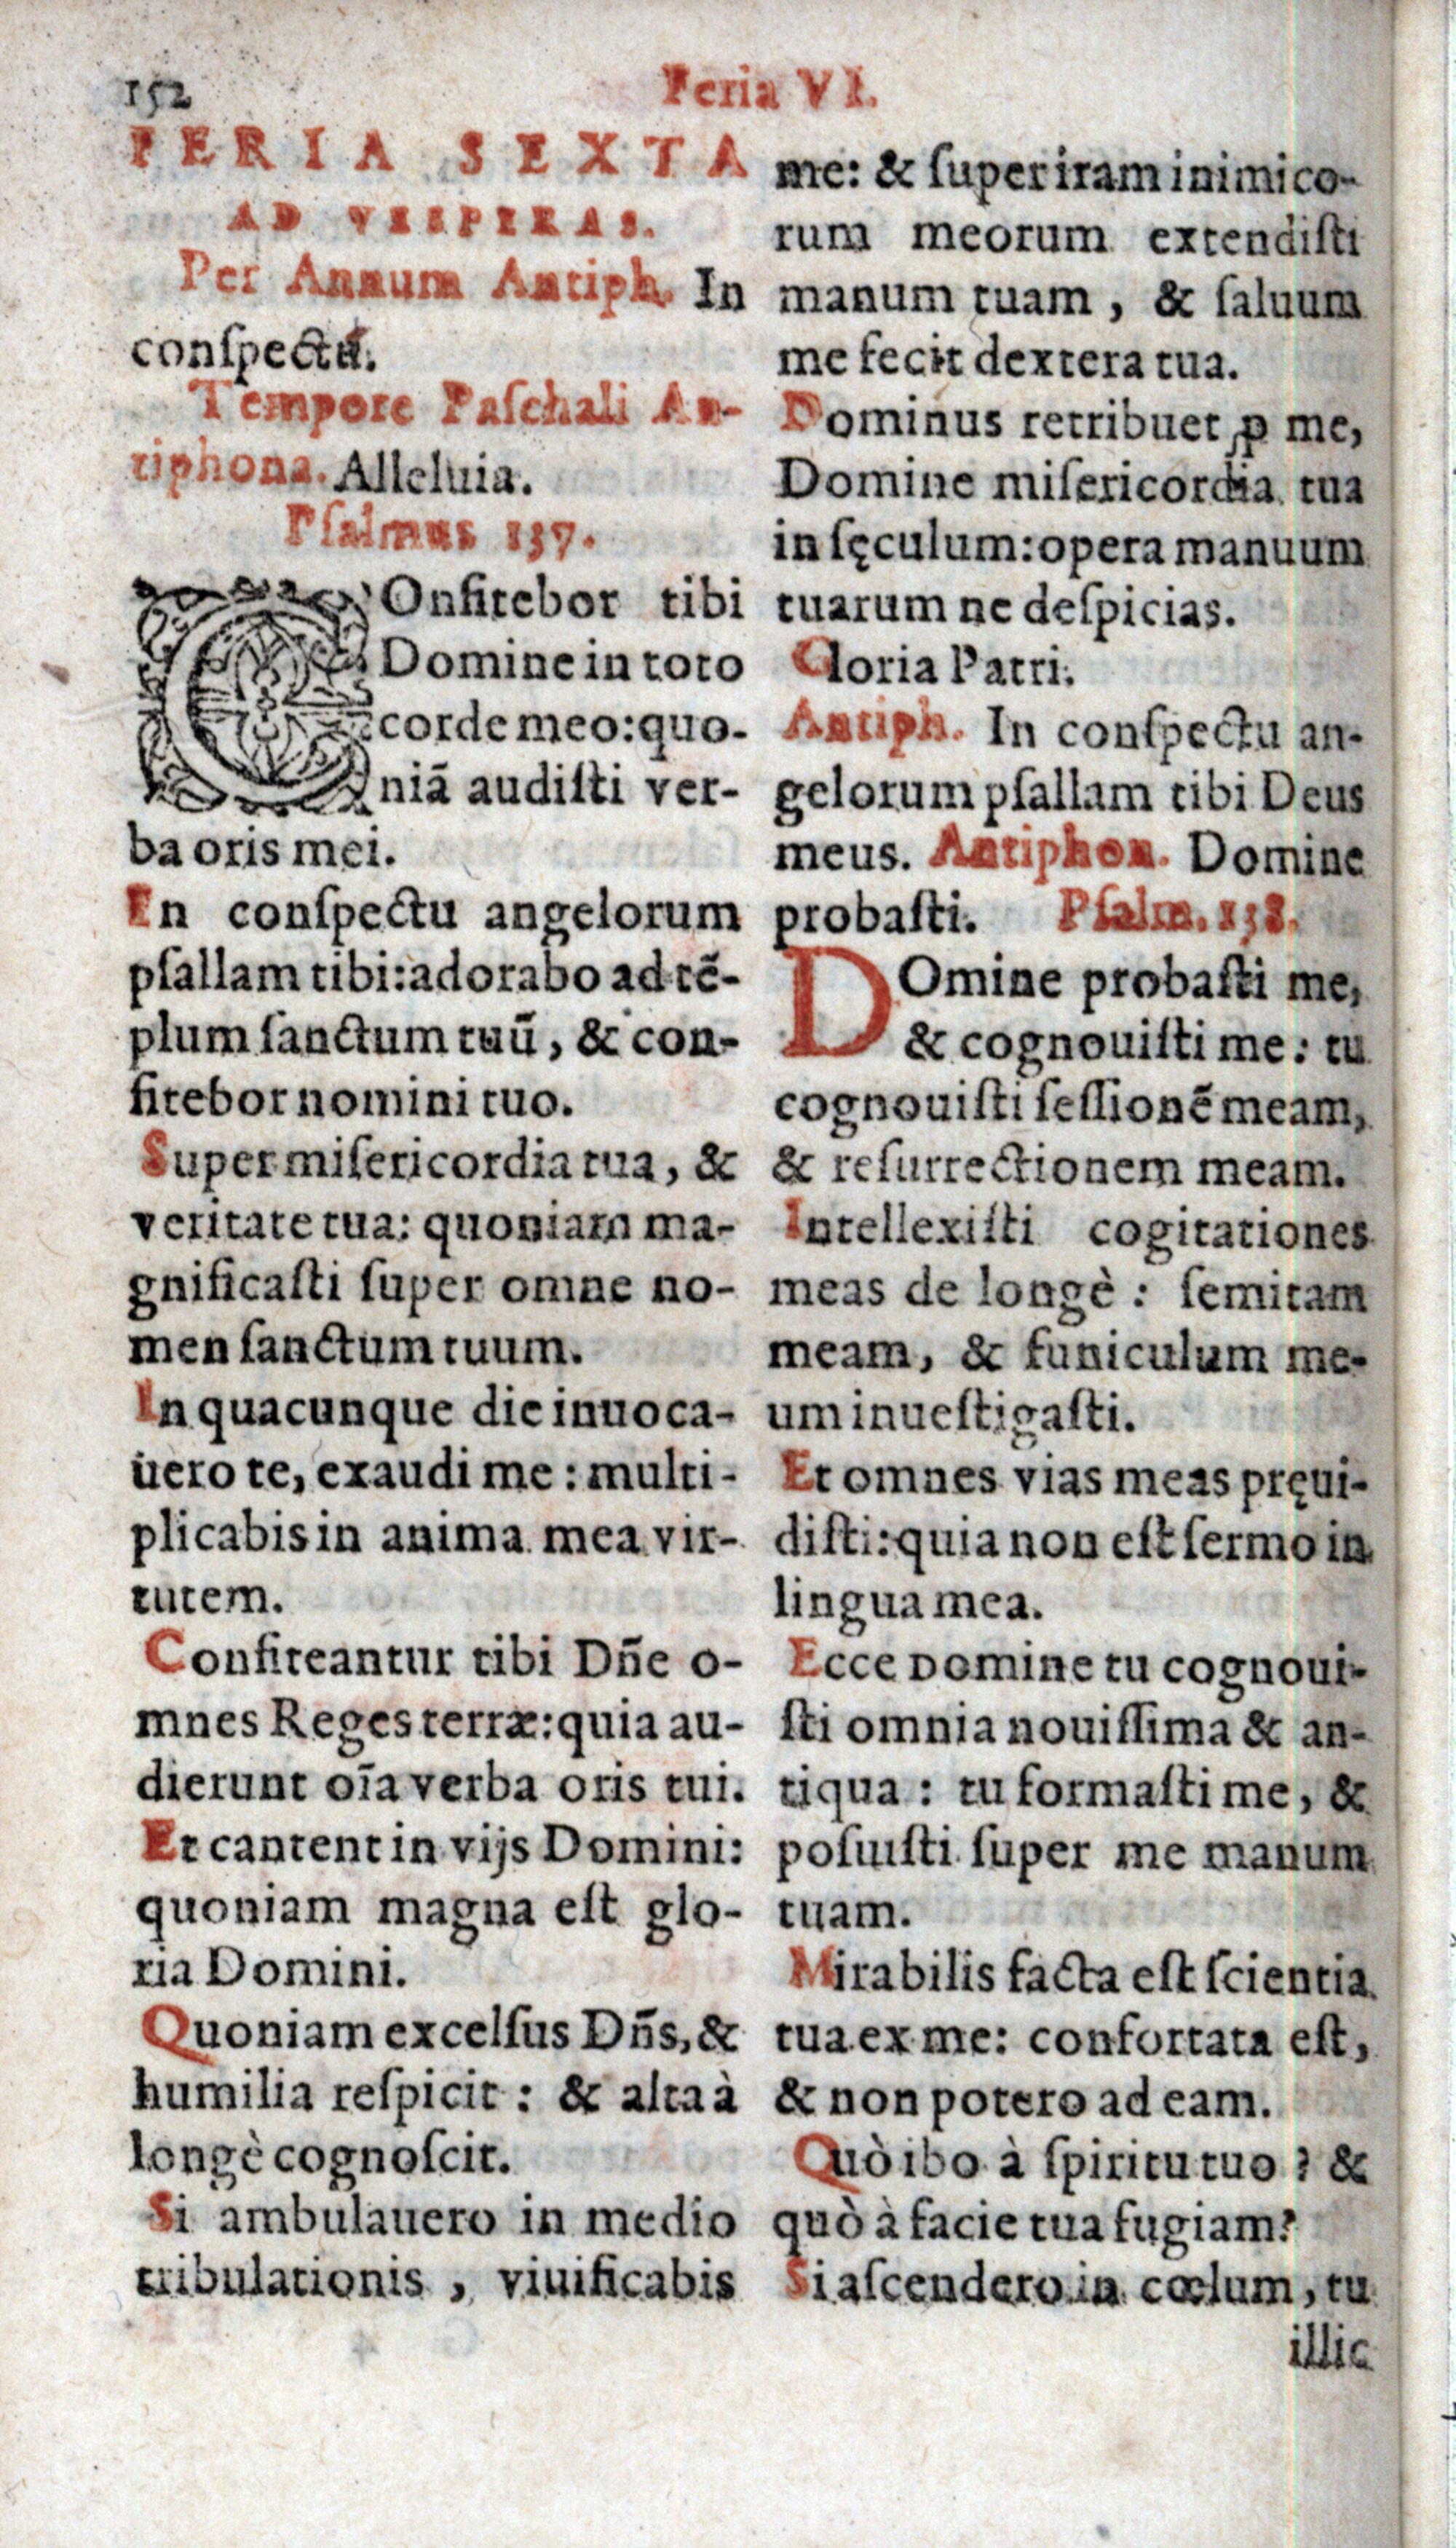 152
Feria VI.
FERIA SEXTA
AD VESPERAS.
Per Annum Antiph. In
conſpectū.
Tempore Paſchali An-
tiphona. Alleluia.
Pſalmus 137.
COnfitebor tibi
Domine in toto
corde meo: quo-
niā audiſti ver-
ba oris mei.
In conſpectu angelorum
pſallam tibi: adorabo ad tē-
plum ſanctum tuū, & con-
fitebor nomini tuo.
Super miſericordia tua, &
veritate tua: quoniam ma-
gnificaſti ſuper omne no-
men ſanctum tuum.
In quacunque die inuoca-
uero te, exaudi me: multi-
plicabis in anima mea vir-
tutem.
Confiteantur tibi Dñe o-
mnes Reges terræ: quia au-
dierunt oīa verba oris tui.
Et cantent in vijs Domini:
quoniam magna eſt glo-
ria Domini.
Quoniam excelſus Dñs, &
humilia reſpicit: & alta à
longè cognoſcit.
Si ambulauero in medio
tribulationis, viuificabis
me: & ſuper iram inimico-
rum meorum extendiſti
manum tuam, & ſaluum
me fecit dextera tua.
Dominus retribuet ꝓ me,
Domine miſericordia tua
in ſęculum: opera manuum
tuarum ne deſpicias.
Gloria Patri.
Antiph. In conſpectu an-
gelorum pſallam tibi Deus
meus. Antiphon. Domine
probaſti. Pſalm. 138.
DOmine probaſti me,
& cognouiſti me: tu
cognouiſti ſeſſionē meam,
& reſurrectionem meam.
Intellexiſti cogitationes
meas de longè: ſemitam
meam, & funiculum me-
um inueſtigaſti.
Et omnes vias meas pręui-
diſti: quia non eſt ſermo in
lingua mea.
Ecce Domine tu cognoui-
ſti omnia nouiſſima & an-
tiqua: tu formaſti me, &
poſuiſti ſuper me manum
tuam.
Mirabilis facta eſt ſcientia
tua ex me: confortata eſt,
& non potero ad eam.
Quò ibo à ſpiritu tuo? &
quò à facie tua fugiam?
Si aſcendero in cœlum, tu
illic